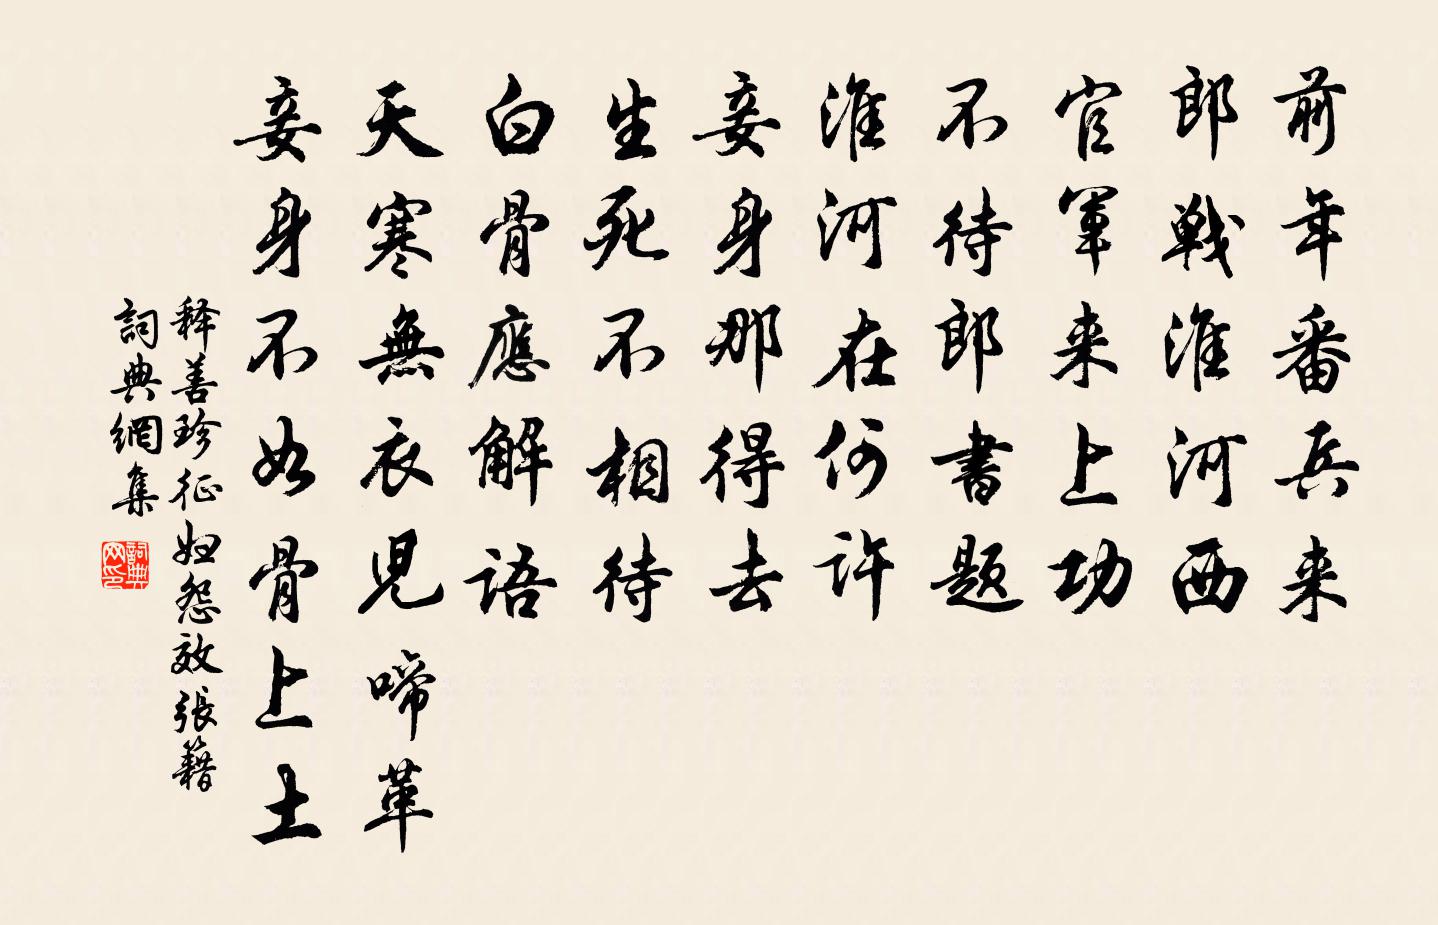 前年番兵来
郎戦淮河西
官軍来上功
不待郎書題
淮河在何許
妾身那得去
生死不相待
白骨應解語
天寒無衣児啼革
妾身不如骨上土
释善珍征妇怨效張籍
詞典網集
詞典网印